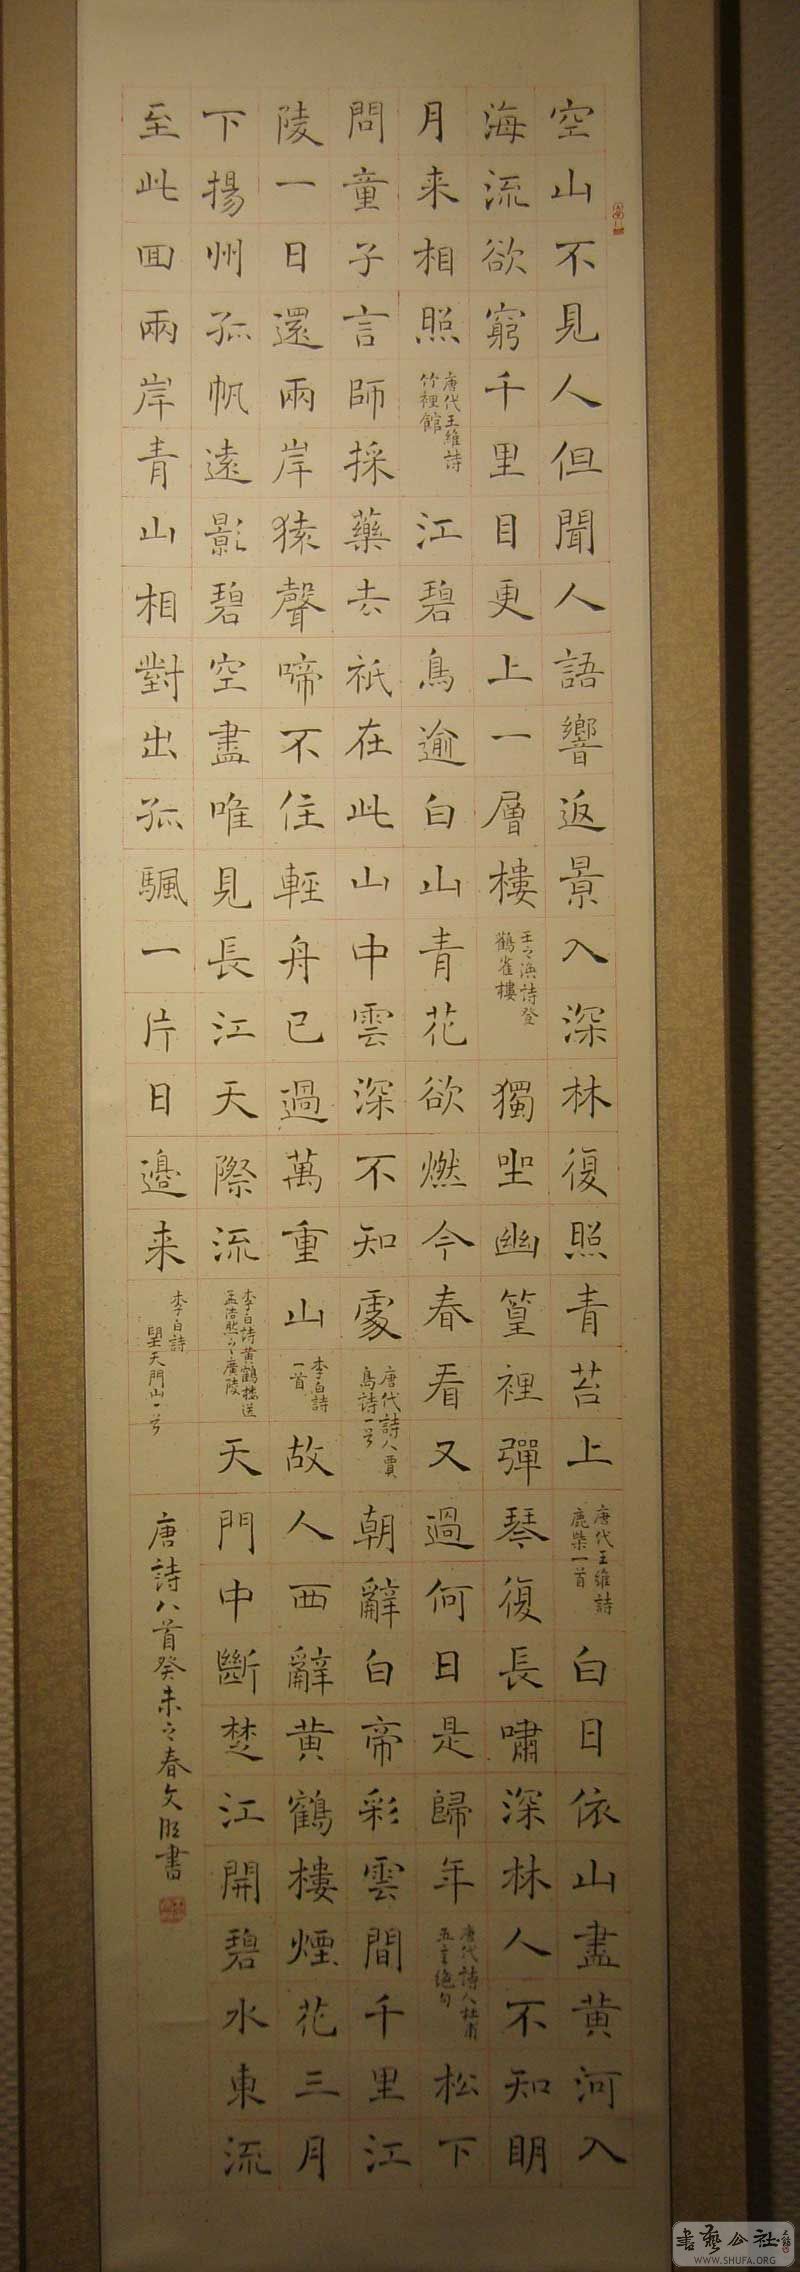 空山不見人但聞人語響返景入深林復照青苔上唐代王維詩鹿柴一首白日依山盡黃河入
海流欲窮千里目更上一層樓王之渙詩登鸛雀樓獨坐幽篁裡彈琴復長嘯深林人不知明
月来相照唐代王維詩竹裡館江碧鳥逾白山青花欲燃今春看又過何日是歸年唐代詩人杜甫五言絕句松下
問童子言師採藥去祇在此山中雲深不知處唐代詩人賈島詩一首朝辭白帝彩雲間千里江
陵一日還兩岸猿聲啼不住輕舟已過萬重山李白詩一首故人西辭黃鶴樓煙花三月
下揚州孤帆遠影碧空盡唯見長江天際流李白詩黃鶴樓送孟浩然之廣陵天門中斷楚江開碧水東流
至此回兩岸青山相對出孤颿一片日邊来李白詩望天門山一首
唐詩八首癸未之春文 書
書藝公社
WWW.SHUFA.ORG